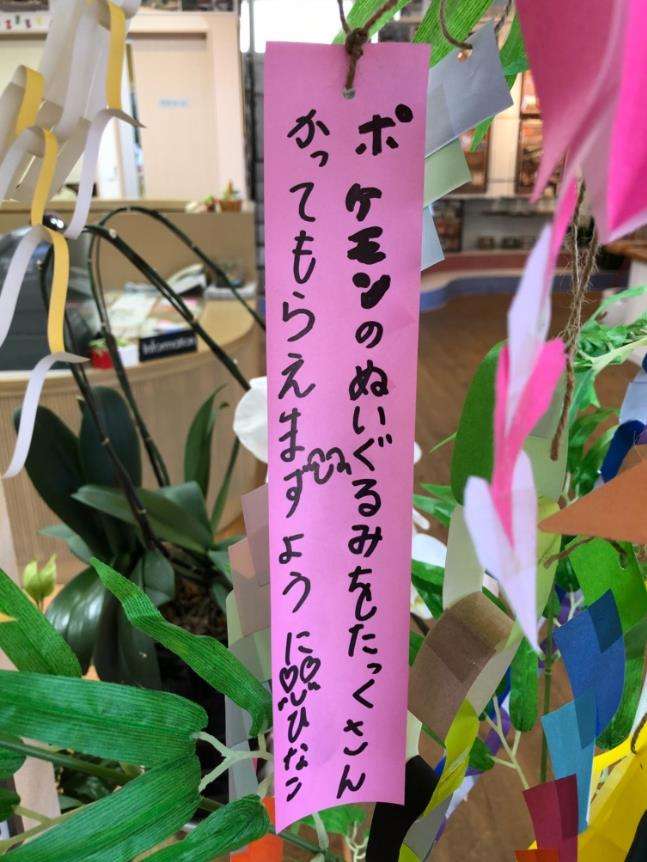 ポケモンのぬいぐるみをたっくさん
かってもらえますように
ひなこ
Information